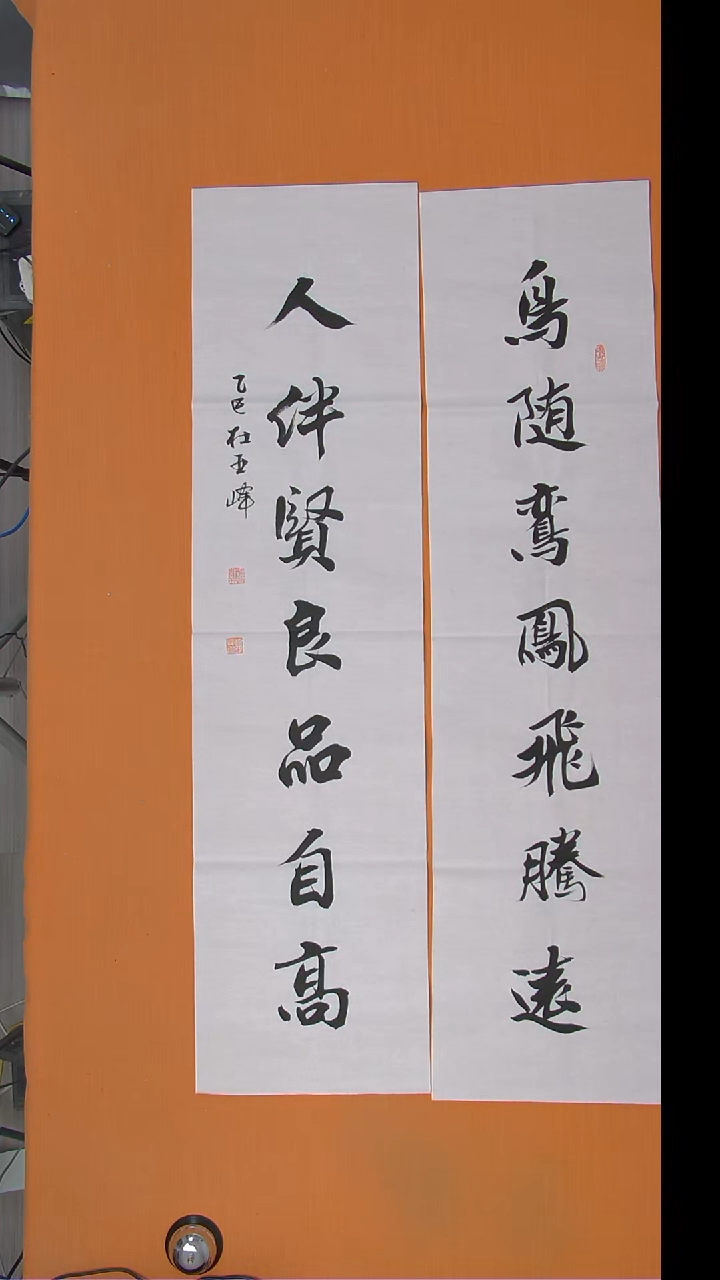 鳥随鸞鳳飛騰遠
人伴賢良品自高
乙巳杜亚峰